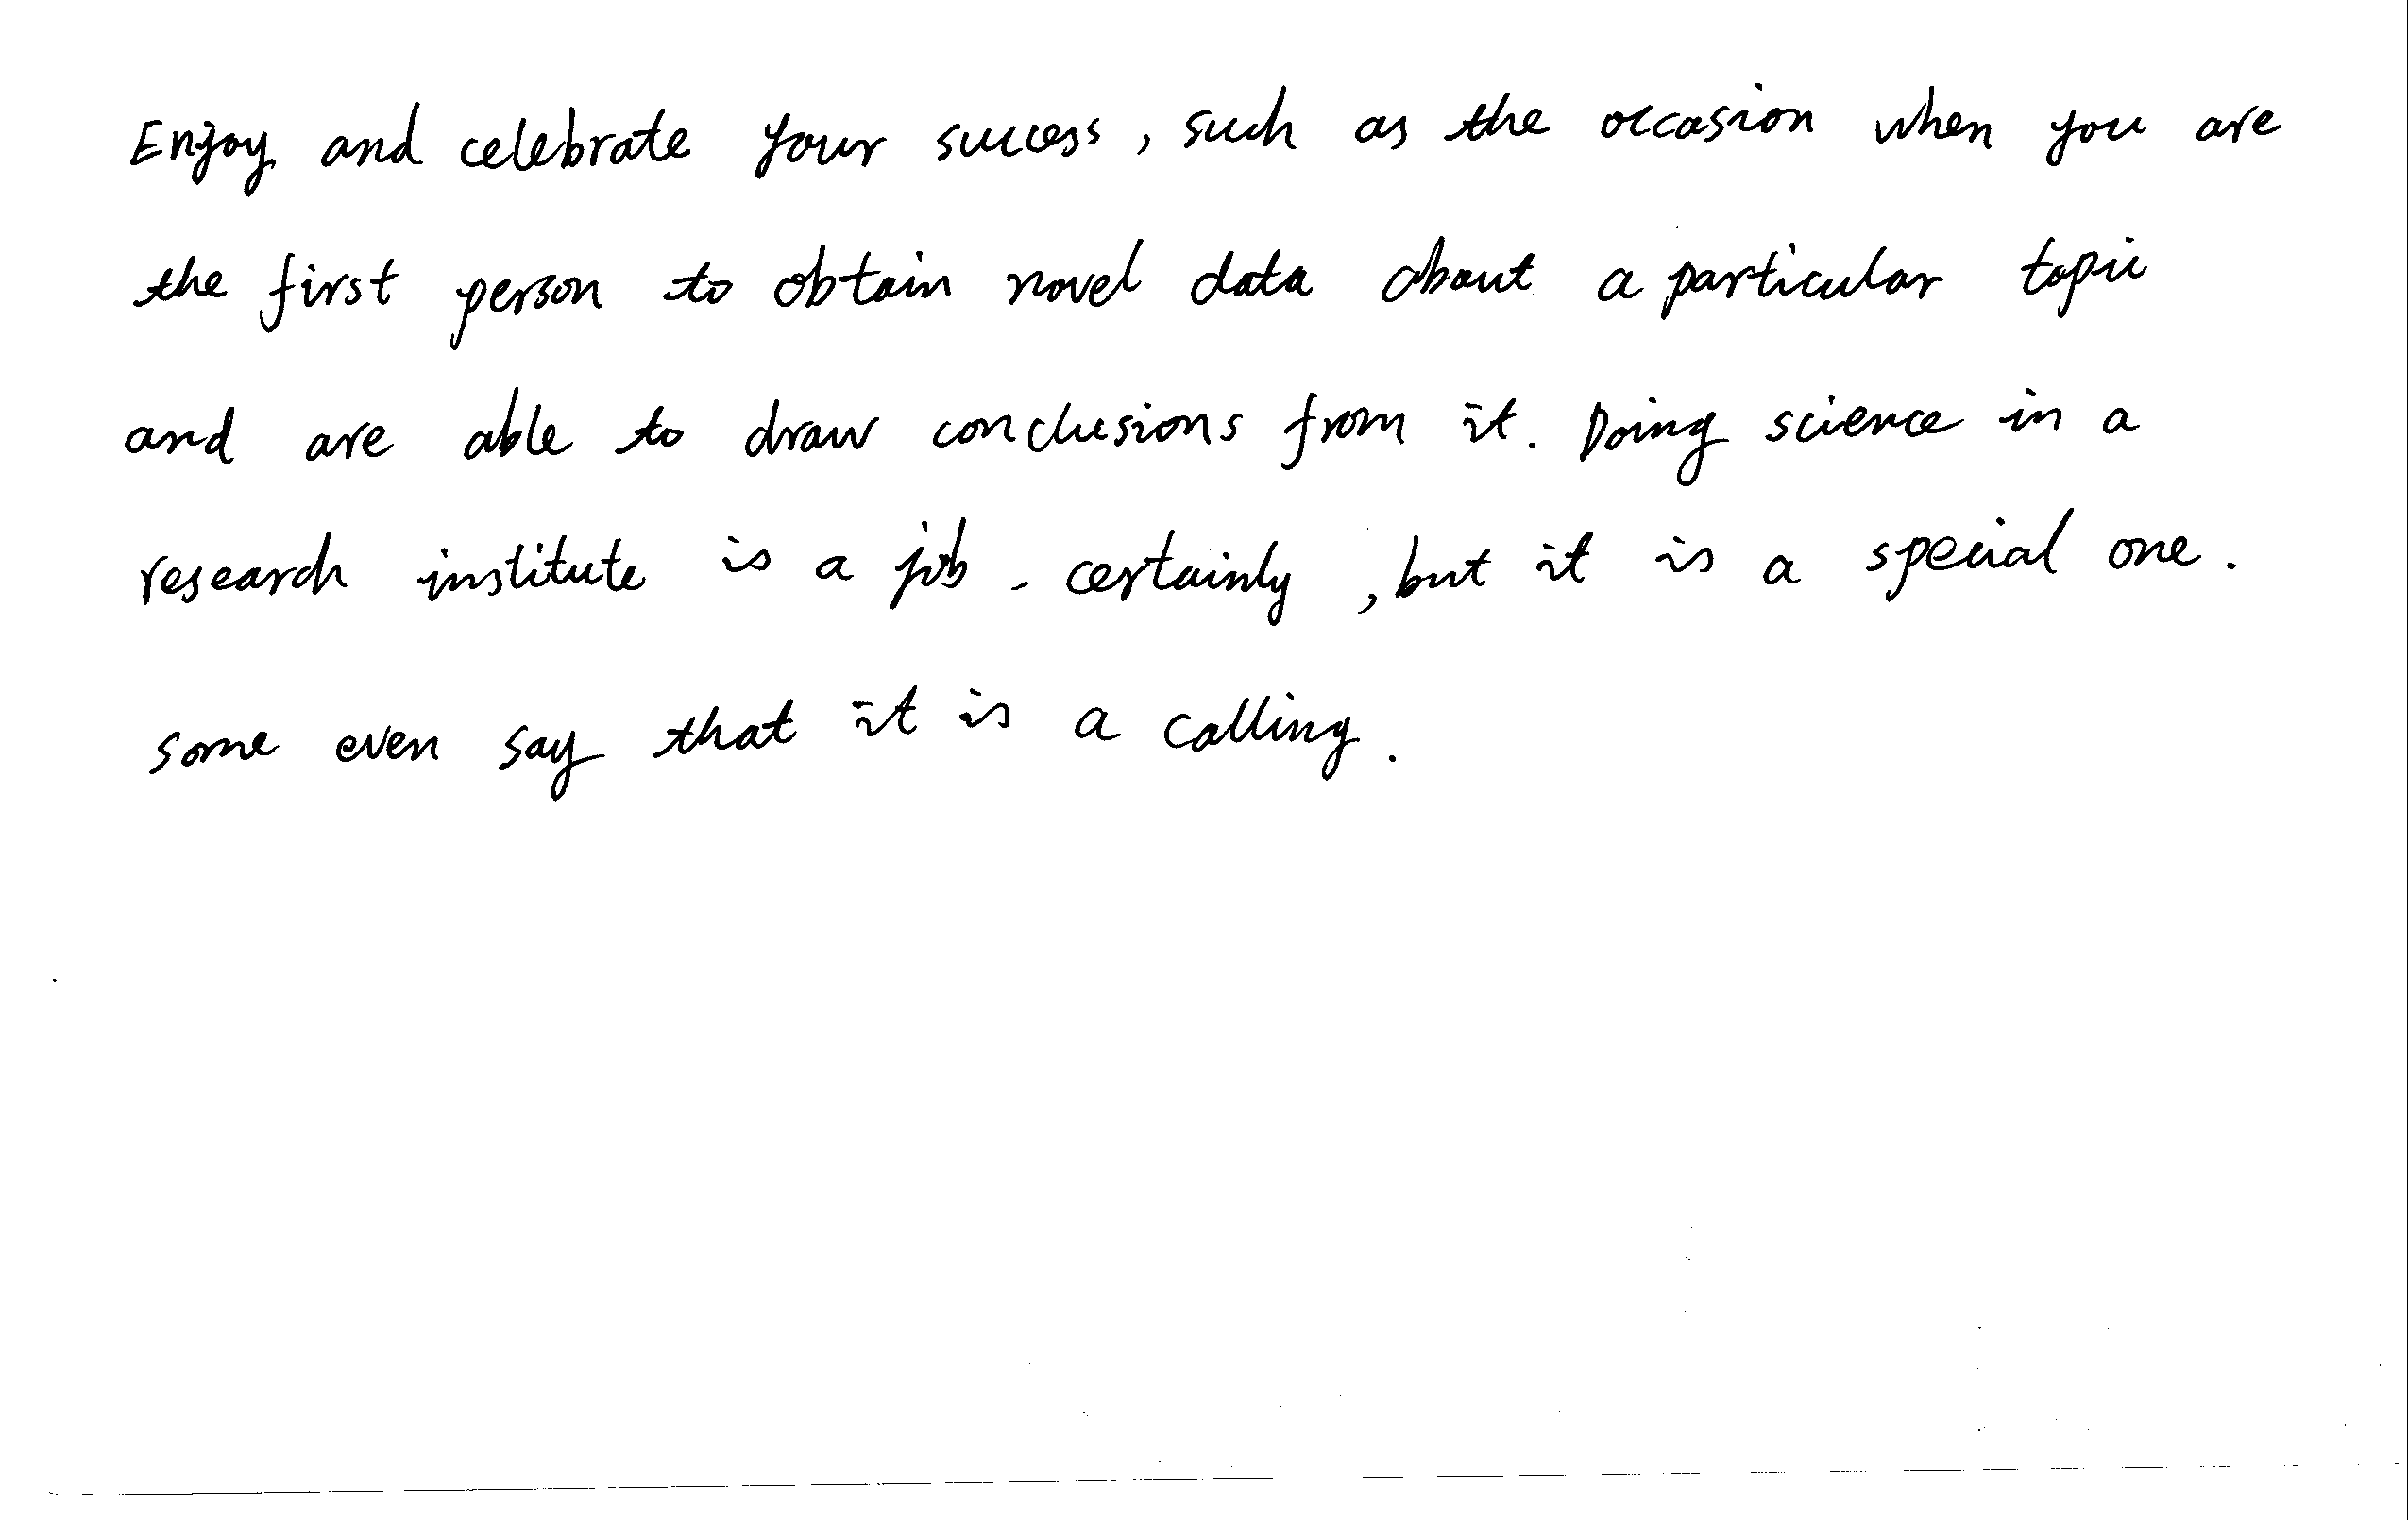 Enjoy and celebrate your success, such as the occasion when you are
the first person to obtain novel data about a particular topic
and are able to draw conclusions from it. Doing science in a
research institute is a job - certainly, but it is a special one.
some even say that it is a calling.